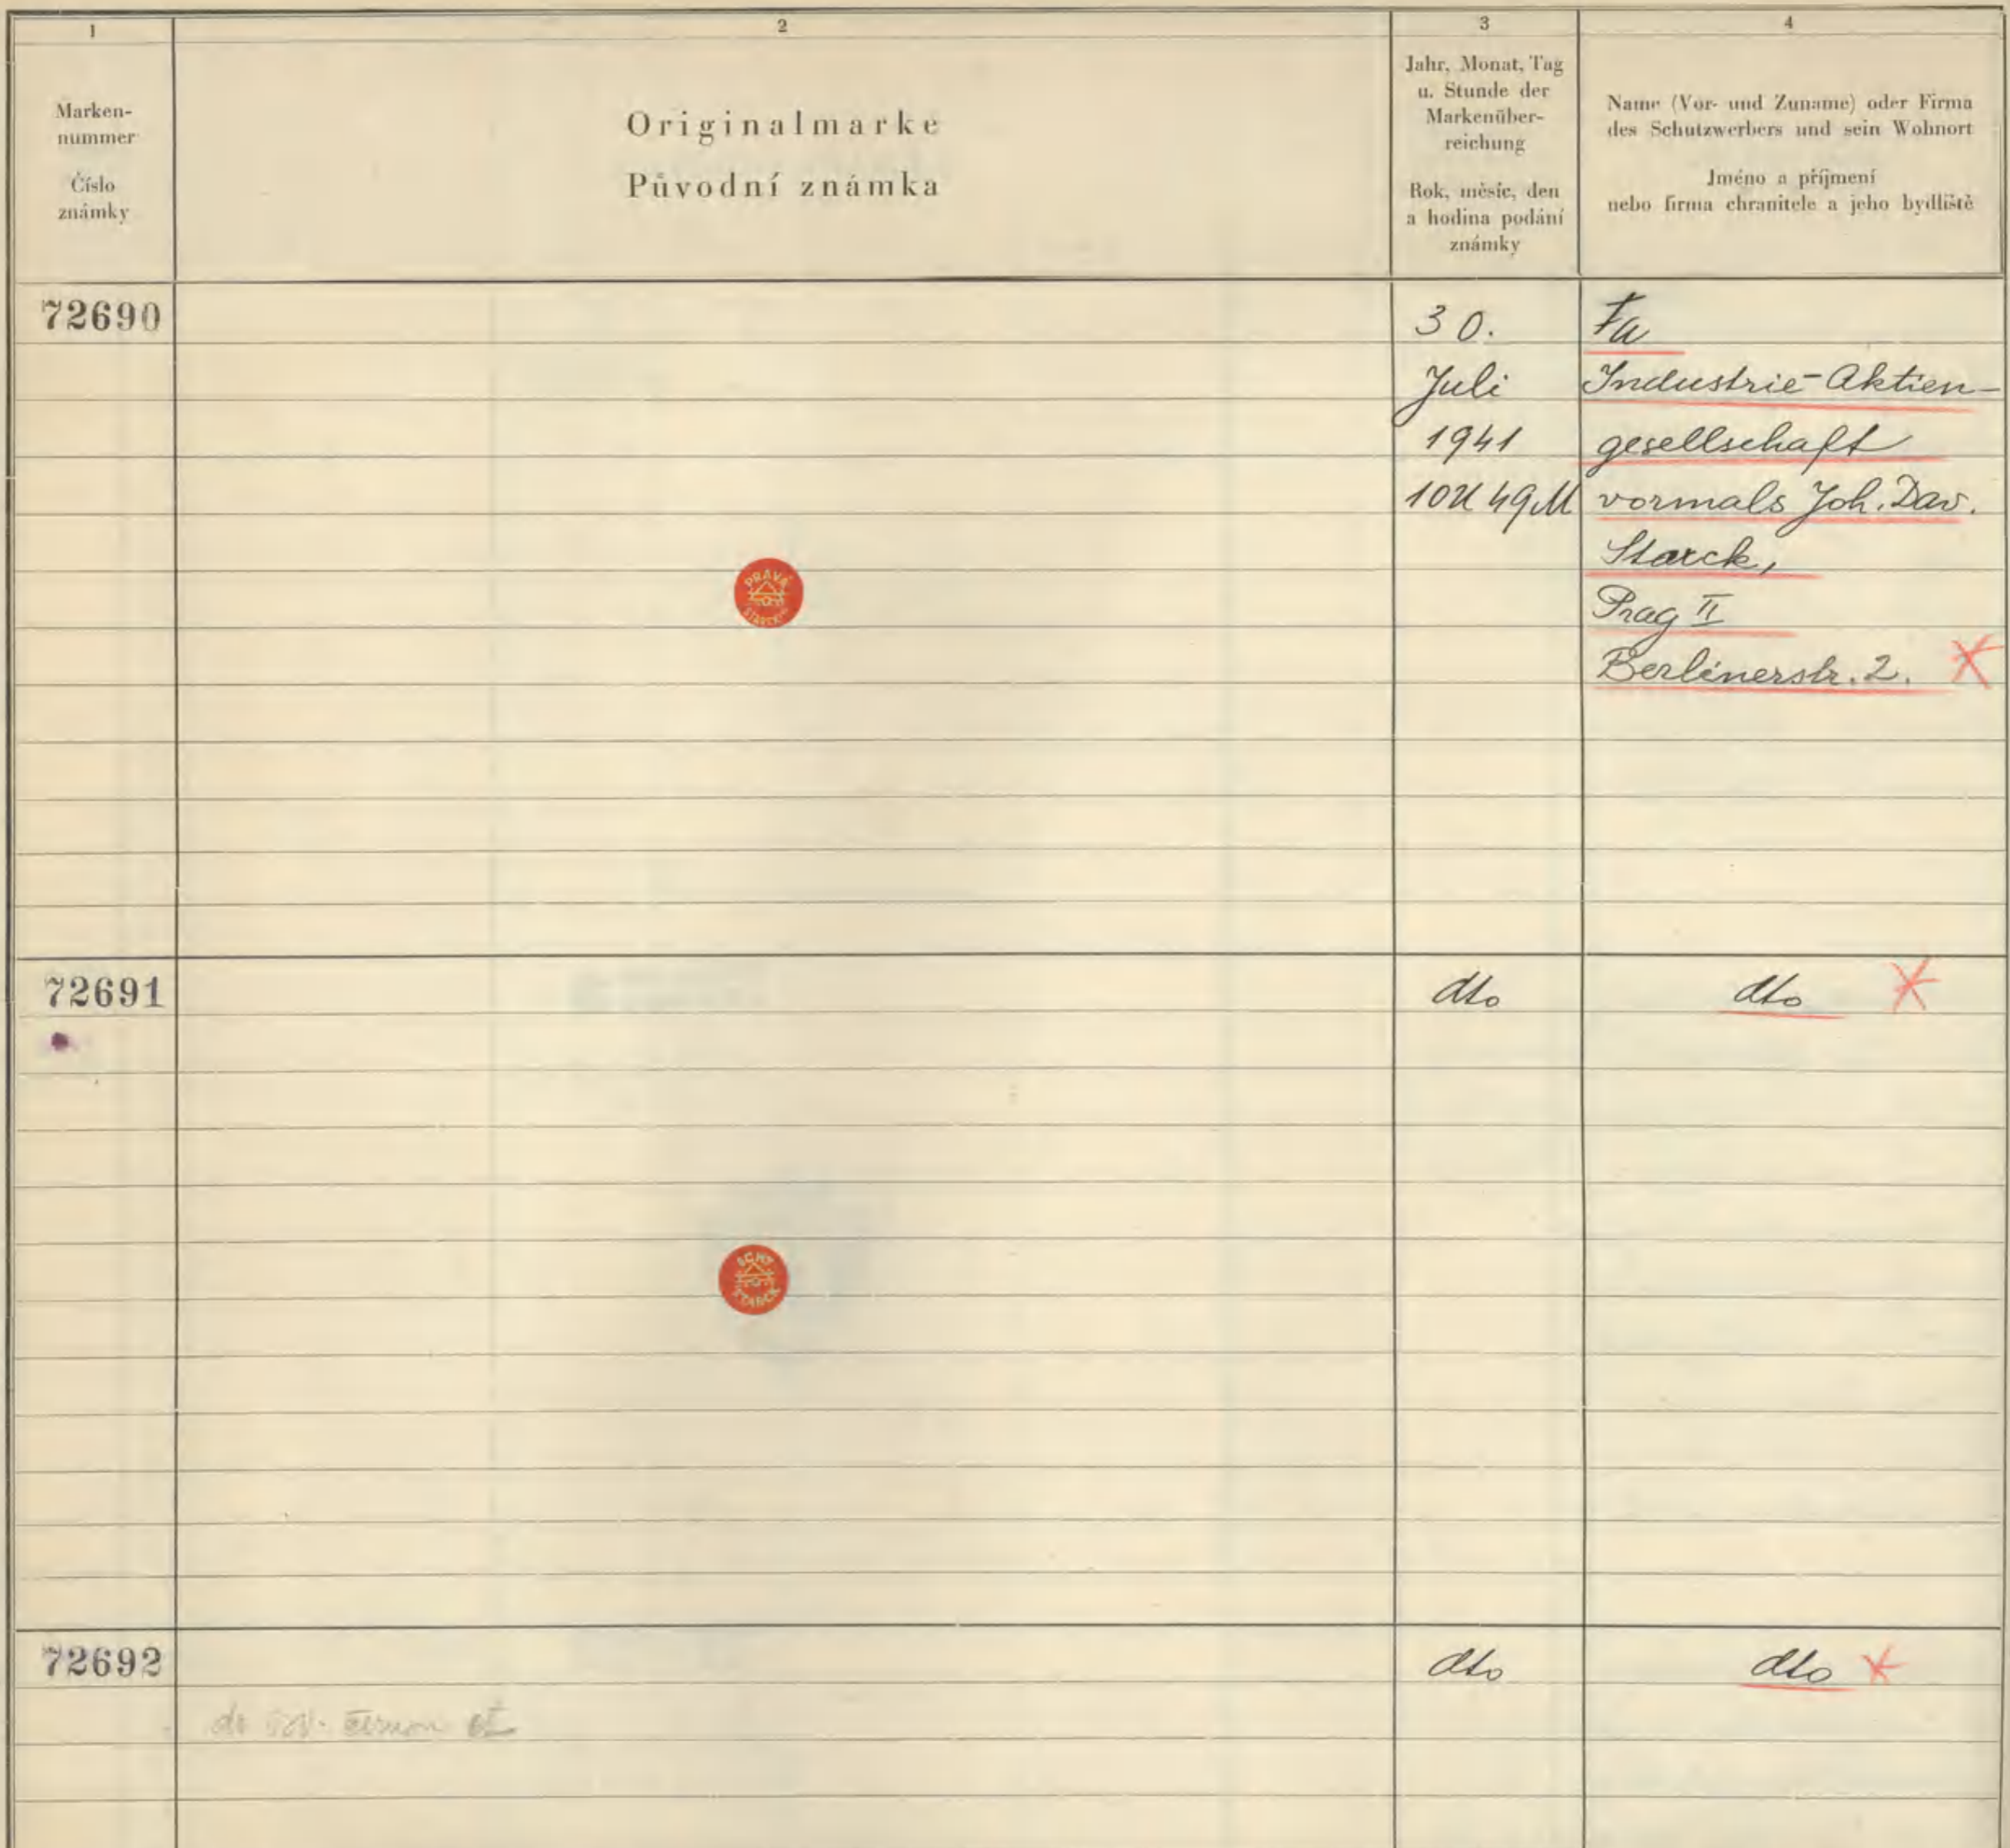 1
2
3
4
Marken-
nummer
Číslo
známky
Originalmarke
Původní známka
Jahr, Monat, Tag
u. Stunde der
Markenüber-
reichung
Rok, měsíc, den
a hodina podání
známky
Name (Vor- und Zuname) oder Firma
des Schutzwerbers und sein Wohnort
Jméno a příjmení
nebo firma chranitele a jeho bydliště
72690
30.
Juli
1941
10U 49M
Fa
Industrie-Aktien-
gesellschaft
vormals Joh. Dav.
Starck,
Prag II
Berlinerstr. 2.
PRAVÁ
72691
dto
dto
STARCK
72692
dto
dto